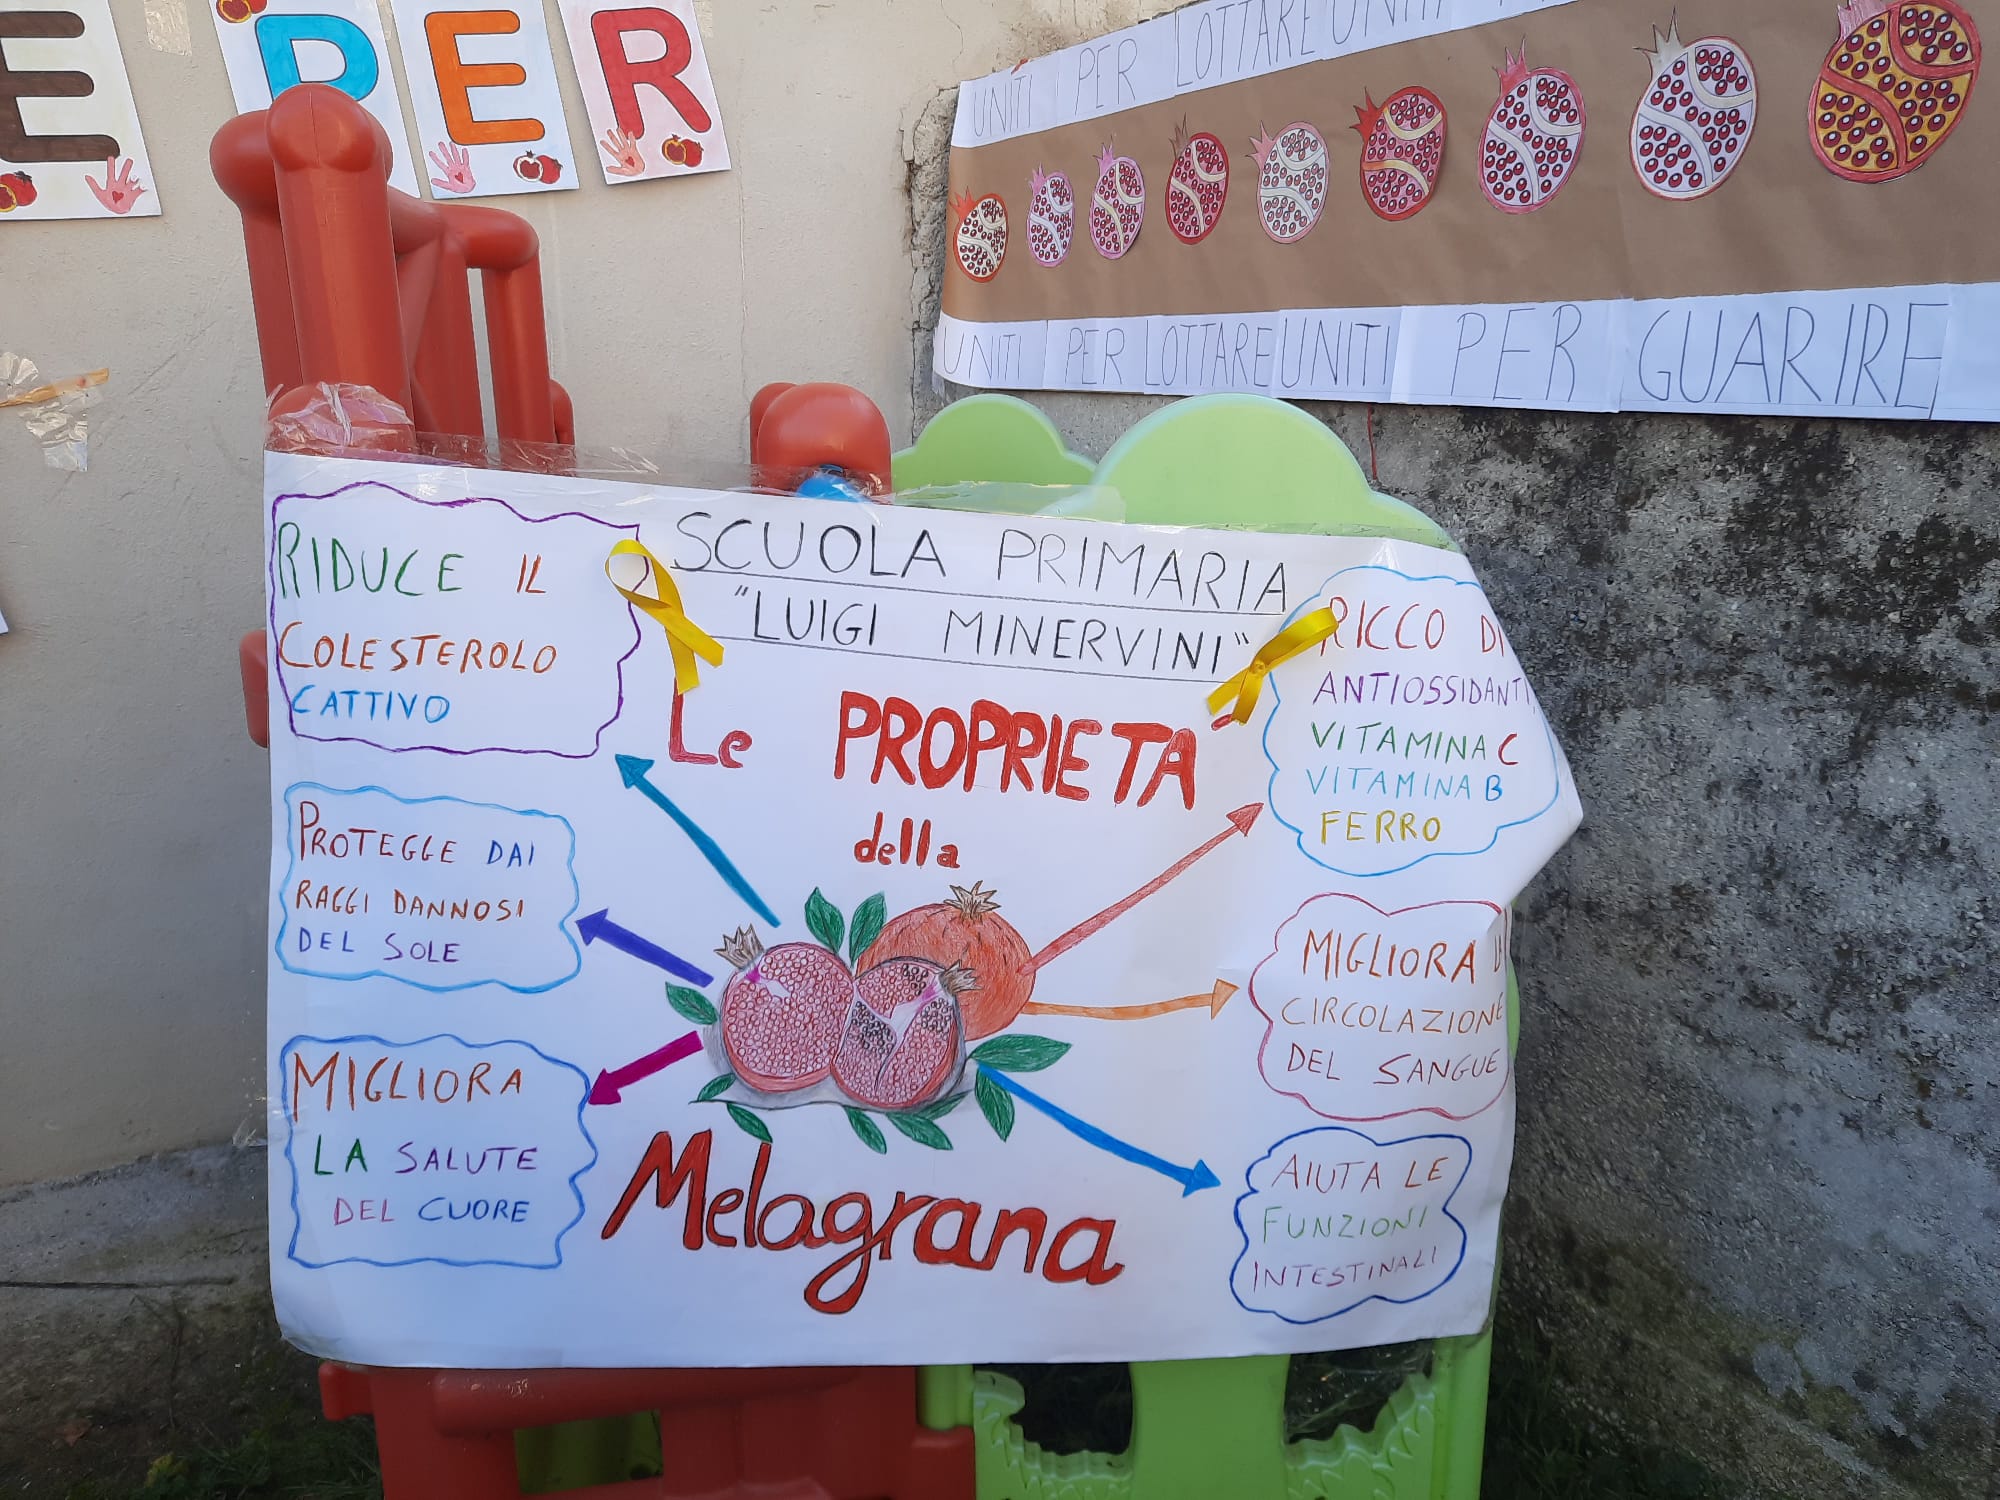 E PER
UNITI PER LOTTARE UNITI
UNITI PER LOTTARE UNITI PER GUARIRE
SCUOLA PRIMARIA
"LUIGI MINERVINI"
Le PROPRIETA'
della
Melagrana
RIDUCE IL
COLESTEROLO
CATTIVO
PROTEGGE DAI
RAGGI DANNOSI
DEL SOLE
MIGLIORA
LA SALUTE
DEL CUORE
RICCO DI
ANTIOSSIDANTI,
VITAMINA C
VITAMINA B
FERRO
MIGLIORA
CIRCOLAZIONE
DEL SANGUE
AIUTA LE
FUNZIONI
INTESTINALI